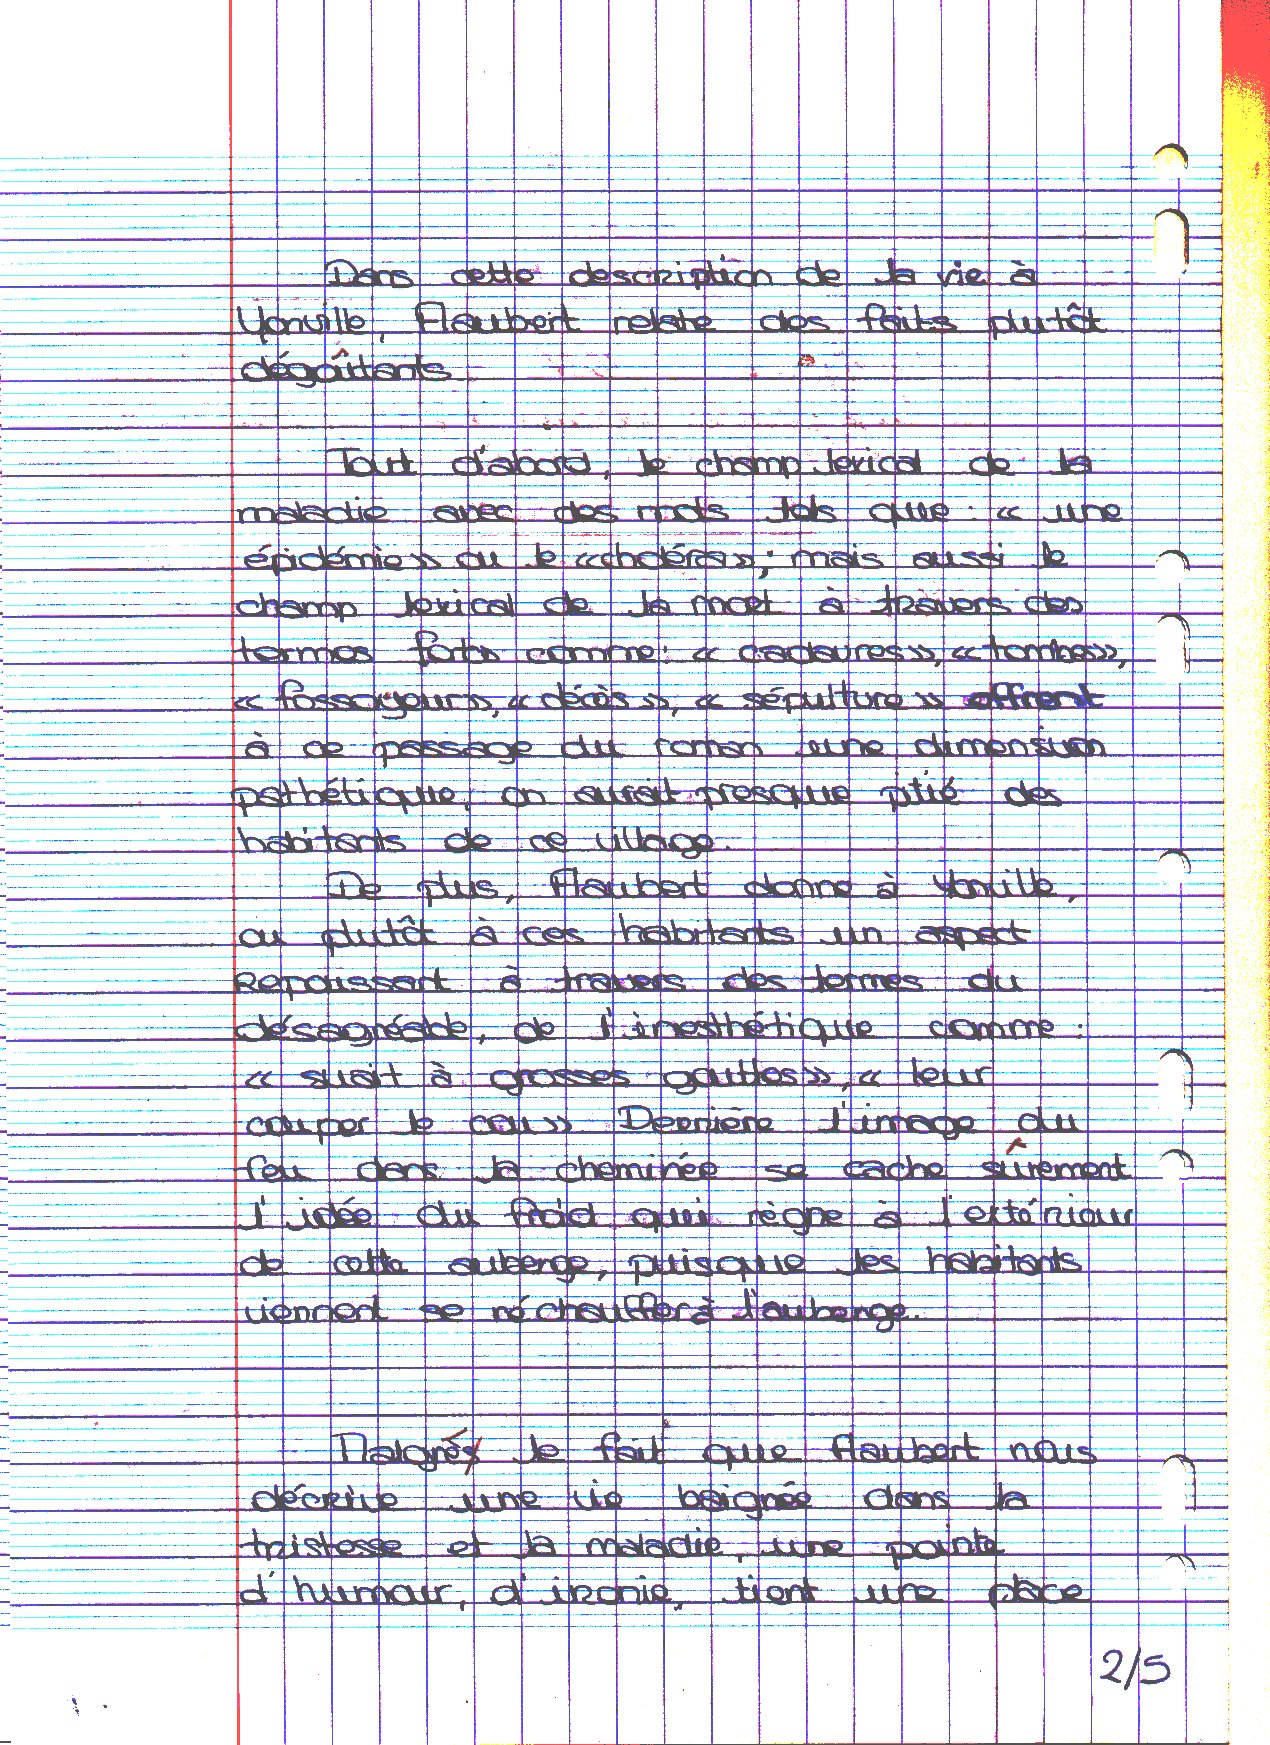 Dans cette description de la vie à
Yonville, Flaubert relate des faits plutôt
dégoîttants.
Tout d'abord, le champ lexical de la
maladie avec des mots tels que : « une
épidémie » ou le « choléra » ; mais aussi le
champ lexical de la mort à travers des
termes forts comme : « cadavres », « tombe »,
« fossoyeur », « décès », « sépulture » offrent
à ce passage du roman une dimension
pathétique, on aurait presque pitié des
habitants de ce village.
De plus, Flaubert donne à Yonville,
ou plutôt à ces habitants un aspect
Repoussant à travers des termes du
désagréable, de l'inesthétique comme :
« suait à grosses gouttes », « leur
couper le cou » Derrière l'image du
feu dans la cheminée se cache sûrement
l'idée du froid qui règne à l'extérieur
de cette auberge, puisque les habitants
viennent se réchauffer à l'auberge.
Malgré le fait que Flaubert nous
décrive une vie baignée dans la
tristesse et la maladie, une pointe
d'humour, d'ironie, tient une place
2/5